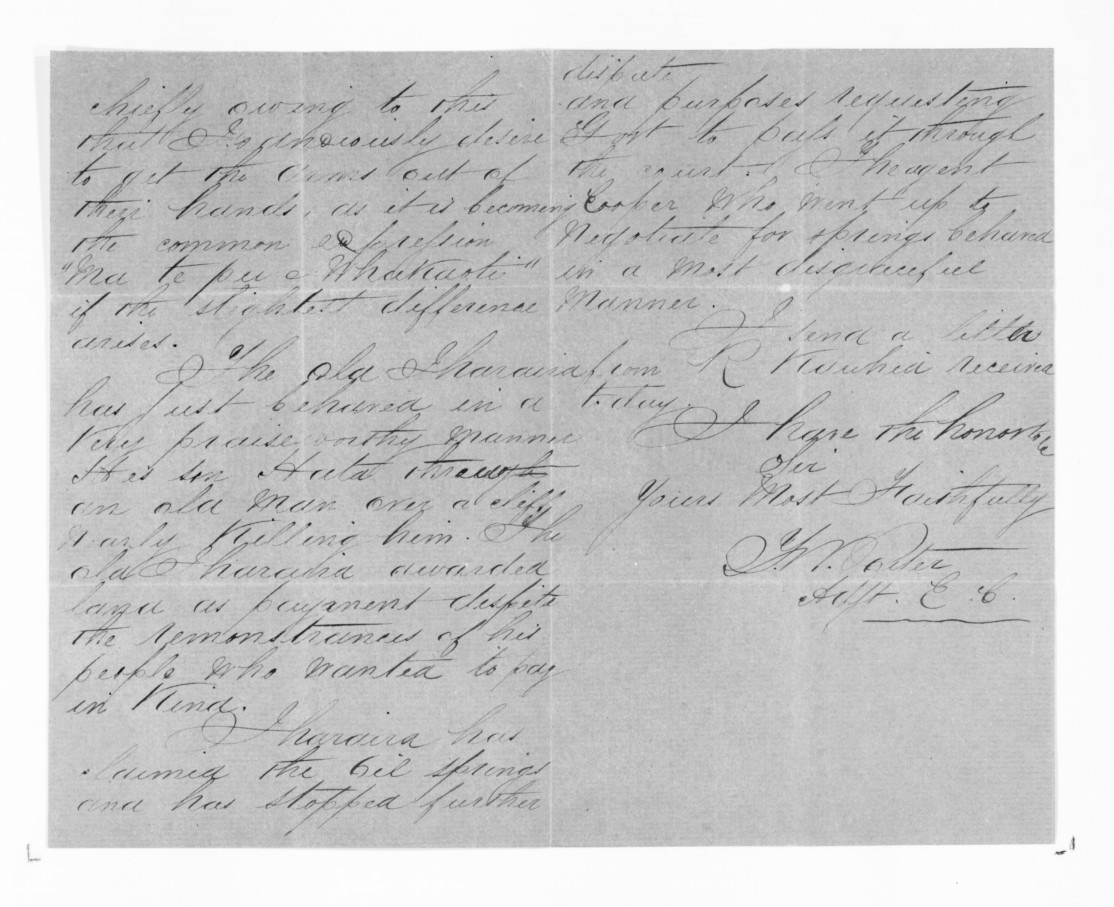 chiefly owing to this
that I so anxiously desire
to get the arms out of
their hands, as it is becoming
the common expression
"Ma te pu e Whakaoti"
if the slightest difference
arises.
The old Iharaira
has just behaved in a
very praiseworthy manner
His son Hata through
an old man over a cliff
nearly killing him. The
old Iharaira awarded
land as payment despite
the remonstrances of his
people who wanted to pay
in Kind.
Iharaira has
claimed the Oil springs
and has stopped further
dispute
and purposes requesting
Govt to pass it through
the court. The agent
Cooper who went up to
Negotiate for springs behaved
in a most disgraceful
manner.
I send a letter
from R Kawhia received
today.
I have the honor to be
Sir
Yours Most Faithfully
T.W. Porter
Adjt. E C.